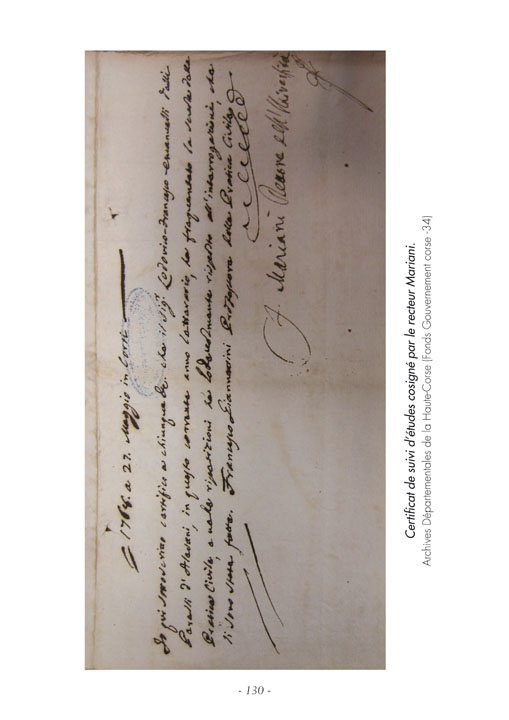 1768. a 27. Maggio in Corti
Io qui sottoscritto certifico a chiunque che il Sig.r Lodovico-Francesco-Emanuelli dalli
Perelli d'Alesani, in questo corrente anno scolastico, ha frequentato la scuola della
Pratica Civile, e nelle ripetizioni ha lodevolmente risposto all'interrogazioni, che
li sono state fatte. Francesco Giammarini Professore della Pratica Civile
Mariani Rettore dell'Università
Certificat de suivi d'études cosigné par le recteur Mariani.
Archives Départementales de la Haute-Corse (Fonds Gouvernement corse -34)
- 130 -